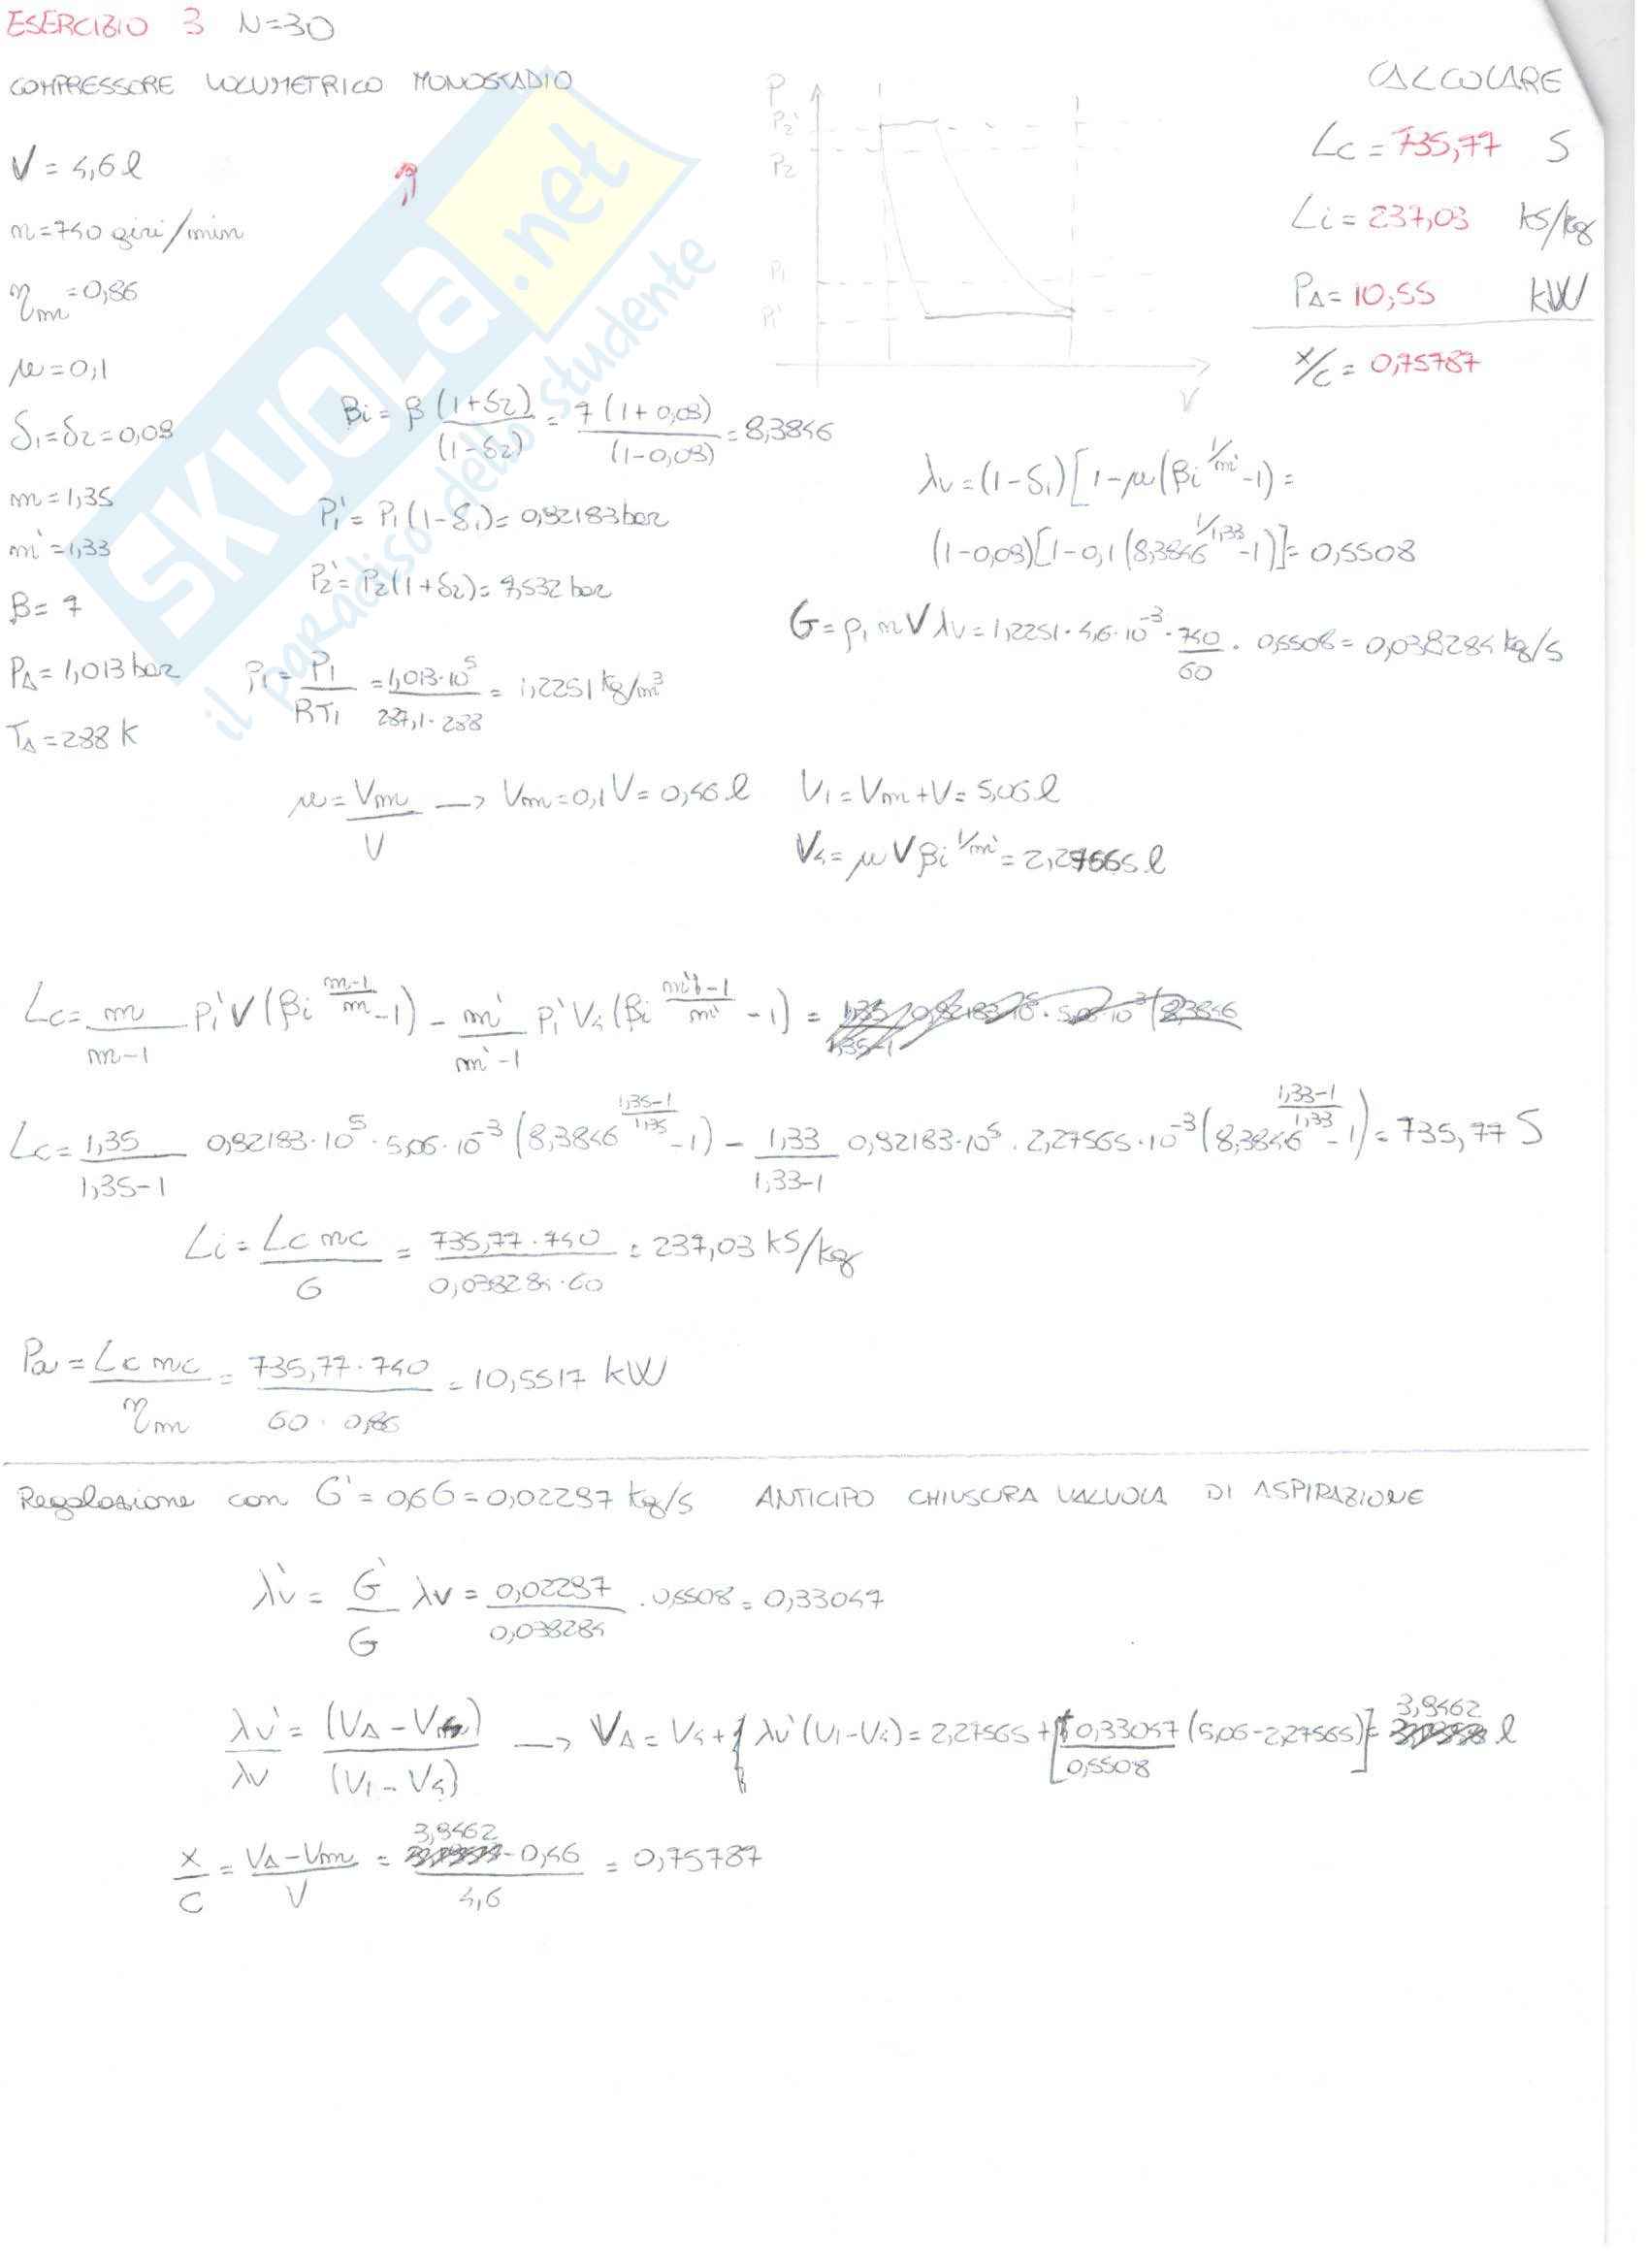 ESERCIZIO 3 N=30
COMPRESSORE VOLUMETRICO MONOSTADIO
V = 4,6 l
n=740 giri/min
ηm=0,86
μ=0,1
δ1=δ2=0,09
m=1,35
m'=1,33
β=7
PA=1,013 bar
TA=288 K
P
P2'
P2
P1
P1'
V
CALCOLARE
Lc = 735,77 J
Li = 237,03 kJ/kg
PA = 10,55 kW
x/c = 0,75787
βi = β (1+δ2)/(1-δ2) = 7(1+0,09)/(1-0,09) = 8,3846
P1' = P1(1-δ1) = 0,92183 bar
P2' = P2(1+δ2) =
ρ1 = P1/RT1 = 1,013·10^5/287,1·288 = 1,2251 kg/m³
λv = (1-δ1)[1-μ(βi^1/m' -1) =
(1-0,09)[1-0,1(8,3846^1/1,33 -1)] = 0,5508
G = ρ1 n V λv = 1,2251·4,6·10^-3·740/60·0,5508 = 0,038284 kg/s
μ = Vm/V → Vm = 0,1V = 0,46 l V1 = Vm+V = 5,06 l
V4 = μVβi^1/m' = 2,27565 l
Lc = m/m-1 P1'V(βi^m-1/m -1) - m'/m'-1 P1'V4(βi^m'-1/m' -1) =
Lc = 1,35/1,35-1 0,92183·10^5·5,06·10^-3(8,3846^1,35-1/1,35 -1) - 1,33/1,33-1 0,92183·10^5·2,27565·10^-3(8,3846^1,33-1/1,33 -1) = 735,77 J
Li = Lc nc/G = 735,77·740/0,038284·60 = 237,03 kJ/kg
Pa = Lc nc/ηm = 735,77·740/60·0,86 = 10,5517 kW
Regolazione con G' = 0,6G = 0,02297 kg/s ANTICIPO CHIUSURA VALVOLA DI ASPIRAZIONE
λv' = G'/G λv = 0,02297/0,038284 · 0,5508 = 0,33047
λv'/λv = (VA-V4)/(V1-V4) → VA = V4 + λv'(V1-V4) = 2,27565 + [0,33047/0,5508 (5,06-2,27565)] = 3,9462 l
x/c = VA-Vm/V = 3,9462-0,46/4,6 = 0,75787
SKUOLA.net
il paradiso dello studente